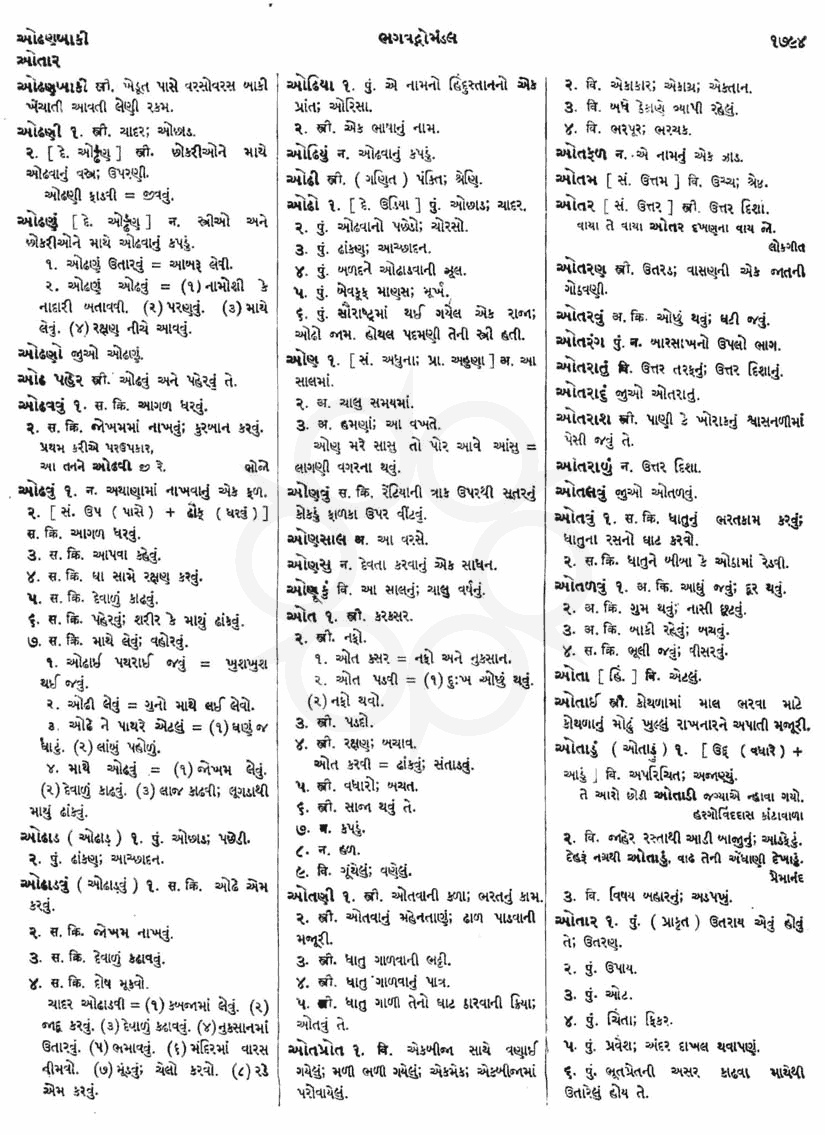 ઓઢણબાકી
ભગવદ્ગોમંડલ
૧૭૯૪
ઓતાર
ઓઢણબાકી સ્ત્રી. ખેડૂત પાસે વરસોવરસ બાકી
ખેંચાતી આવતી લેણી રકમ.
ઓઢણી ૧. સ્ત્રી. ચાદર; ઓછાડ.
૨. [ દે. ઓડ્ઢણ ] સ્ત્રી. છોકરીઓને માથે
ઓઢવાનું વસ્ત્ર; ઉપરણી.
ઓઢણી ફાડવી = જીવવું.
ઓઢણું [ દે. ઓડ્ઢણ ] ન. સ્ત્રીઓ અને
છોકરીઓને માથે ઓઢવાનું કપડું.
૧. ઓઢણું ઉતારવું = આબરૂ લેવી.
૨. ઓઢણું ઓઢવું = (૧) નામોશી કે
નાદારી બતાવવી. (૨) પરણવું. (૩) માથે
લેવું. (૪) રક્ષણ નીચે આવવું.
ઓઢણો જુઓ ઓઢણું.
ઓઢ પહેર સ્ત્રી. ઓઢવું અને પહેરવું તે.
ઓઢવવું ૧. સ. ક્રિ. આગળ ધરવું.
૨. સ. ક્રિ. જોખમમાં નાખવું; કુરબાન કરવું.
પ્રથમ કરીએ પરઉપકાર,
આ તનને ઓઢવી જી રે. ભોજો
ઓઢવું ૧. ન. અથાણામાં નાખવાનું એક ફળ.
૨. [ સં. ઉપ ( પાસે ) + ઢૌક્ ( ધરવું ) ]
સ. ક્રિ. આગળ ધરવું.
૩. સ. ક્રિ. આપવા કહેવું.
૪. સ. ક્રિ. ઘા સામે રક્ષણ કરવું.
૫. સ. ક્રિ. દેવાળું કાઢવું.
૬. સ. ક્રિ. પહેરવું; શરીર કે માથું ઢાંકવું.
૭. સ. ક્રિ. માથે લેવું; વહોરવું.
૧. ઓઢાઈ પથરાઈ જવું = ખુશખુશ
થઈ જવું.
૨. ઓઢી લેવું = ગુનો માથે લઈ લેવો.
૩. ઓઢે ને પાથરે એટલું = (૧) ઘણું જ
ઘાટું. (૨) લાંબું પહોળું.
૪. માથે ઓઢવું = (૧) જોખમ લેવું.
(૨) દેવાળું કાઢવું. (૩) લાજ કાઢવી; લૂગડાથી
માથું ઢાંકવું.
ઓઢાડ ( ઓઢાડ્ ) ૧. પું. ઓછાડ; પછેડી.
૨. પું. ઢાંકણ; આચ્છાદન.
ઓઢાડવું ( ઓઢાડ્વું ) ૧. સ. ક્રિ. ઓઢે એમ
કરવું.
૨. સ. ક્રિ. જોખમ નાખવું.
૩. સ. ક્રિ. દેવાળું કઢાવવું.
૪. સ. ક્રિ. દોષ મૂકવો.
ચાદર ઓઢાડવી = (૧) કબજામાં લેવું. (૨)
જાદુ કરવું. (૩) દેવાળું કઢાવવું. (૪) નુકસાનમાં
ઉતારવું. (૫) ભમાવવું. (૬) મંદિરમાં વારસ
નીમવો. (૭) મૂંડવું; ચેલો કરવો. (૮) રડે
એમ કરવું.
ઓઢિયા ૧. પું. એ નામનો હિંદુસ્તાનનો એક
પ્રાંત; ઓરિસા.
૨. સ્ત્રી. એક ભાષાનું નામ.
ઓઢિયું ન. ઓઢવાનું કપડું.
ઓઢી સ્ત્રી. ( ગણિત ) પંક્તિ; શ્રેણિ.
ઓઢો ૧. [ દે. ઉડ્ડિયા ] પું. ઓછાડ; ચાદર.
૨. પું. ઓઢવાનો પછેડો; ચોરસો.
૩. પું. ઢાંકણ; આચ્છાદન.
૪. પું. બળદને ઓઢાડવાની ઝૂલ.
૫. પું. બેવકૂફ માણસ; મૂર્ખ.
૬. પું. સૌરાષ્ટ્રમાં થઈ ગયેલ એક રાજા;
ઓઢો જામ. હોથલ પદમણી તેની સ્ત્રી હતી.
ઓણ ૧. [ સં. અધુના; પ્રા. અહુણા ] અ. આ
સાલમાં.
૨. અ. ચાલુ સમયમાં.
૩. અ. હમણાં; આ વખતે.
ઓણ મરે સાસુ તો પોર આવે આંસુ =
લાગણી વગરના થવું.
ઓણવું સ. ક્રિ. રેંટિયાની ત્રાક ઉપરથી સૂતરનું
કોકડું ફાળકા ઉપર વીંટવું.
ઓણસાલ અ. આ વરસે.
ઓણસુ ન. દેવતા કરવાનું એક સાધન.
ઓણૂકું વિ. આ સાલનું; ચાલુ વર્ષનું.
ઓત ૧. સ્ત્રી. કરકસર.
૨. સ્ત્રી. નફો.
૧. ઓત કસર = નફો અને નુકસાન.
૨. ઓત પડવી = (૧) દુઃખ ઓછું થવું.
(૨) નફો થવો.
૩. સ્ત્રી. પડદો.
૪. સ્ત્રી. રક્ષણ; બચાવ.
ઓત કરવી = ઢાંકવું; સંતાડવું.
૫. સ્ત્રી. વધારો; બચત.
૬. સ્ત્રી. સાજા થવું તે.
૭. ન. કપડું.
૮. ન. હળ.
૯. વિ. ગૂંથેલું; વણેલું.
ઓતણી ૧. સ્ત્રી. ઓતવાની કળા; ભરતનું કામ.
૨. સ્ત્રી. ઓતવાનું મહેનતાણું; ઢાળ પાડવાની
મજૂરી.
૩. સ્ત્રી. ધાતુ ગાળવાની ભટ્ટી.
૪. સ્ત્રી. ધાતુ ગાળવાનું પાત્ર.
૫. સ્ત્રી. ધાતુ ગાળી તેનો ઘાટ ઠારવાની ક્રિયા;
ઓતવું તે.
ઓતપ્રોત ૧. વિ. એકબીજા સાથે વણાઈ
ગયેલું; મળી ભળી ગયેલું; એકમેક; એકબીજામાં
પરોવાયેલું.
૨. વિ. એકાકાર; એકાગ્ર; એકતાન.
૩. વિ. બધે ઠેકાણે વ્યાપી રહેલું.
૪. વિ. ભરપૂર; ભરચક.
ઓતફળ ન. એ નામનું એક ઝાડ.
ઓતમ [ સં. ઉત્તમ ] વિ. ઉચ્ચ; શ્રેષ્ઠ.
ઓતર [ સં. ઉત્તર ] સ્ત્રી. ઉત્તર દિશા.
વાયા તે વાયા ઓતર દખણના વાય જો.
લોકગીત
ઓતરણ સ્ત્રી. ઉતરડ; વાસણની એક જાતની
ગોઠવણી.
ઓતરવું અ. ક્રિ. ઓછું થવું; ઘટી જવું.
ઓતરંગ પું. ન. બારસાખનો ઉપલો ભાગ.
ઓતરાતું વિ. ઉત્તર તરફનું; ઉત્તર દિશાનું.
ઓતરાદું જુઓ ઓતરાતુ.
ઓતરાશ સ્ત્રી. પાણી કે ખોરાકનું શ્વાસનળીમાં
પેસી જવું તે.
ઓતરાળું ન. ઉત્તર દિશા.
ઓતલવું જુઓ ઓતળવું.
ઓતવું ૧. સ. ક્રિ. ધાતુનું ભરતકામ કરવું;
ધાતુના રસનો ઘાટ કરવો.
૨. સ. ક્રિ. ધાતુને બીબા કે ઓડામાં રેડવી.
ઓતળવું ૧. અ. ક્રિ. આઘું જવું; દૂર થવું.
૨. અ. ક્રિ. ગુમ થવું; નાસી છૂટવું.
૩. અ. ક્રિ. બાકી રહેવું; બચવું.
૪. સ. ક્રિ. ભૂલી જવું; વીસરવું.
ઓતા [ હિં. ] વિ. એટલું.
ઓતાઈ સ્ત્રી. કોથળામાં માલ ભરવા માટે
કોથળાનું મોઢું ખુલ્લું રાખનારને અપાતી મજૂરી.
ઓતાડું ( ઓતાડું ) ૧. [ ઉદ્ ( વધારે ) +
આડું ] વિ. અપરિચિત; અજાણ્યું.
તે આરો છોડી ઓતાડી જગ્યાએ ન્હાવા ગયો.
હરગોવિંદદાસ કાંટાવાળા
૨. વિ. જાહેર રસ્તાથી આડી બાજુનું; આડફેડું.
દેહરૂં નગ્રથી ઓતાડું, વાઢ તેની એંધાણી દેખાડું.
પ્રેમાનંદ
૩. વિ. વિષય બહારનું; અડપખું.
ઓતાર ૧. પું. ( પ્રાકૃત ) ઉતરાય એવું હોવું
તે; ઉતરણ.
૨. પું. ઉપાય.
૩. પું. ઓટ.
૪. પું. ચિંતા; ફિકર.
૫. પું. પ્રવેશ; અંદર દાખલ થવાપણું.
૬. પું. ભૂતપ્રેતની અસર કાઢવા માથેથી
ઉતારેલું હોય તે.